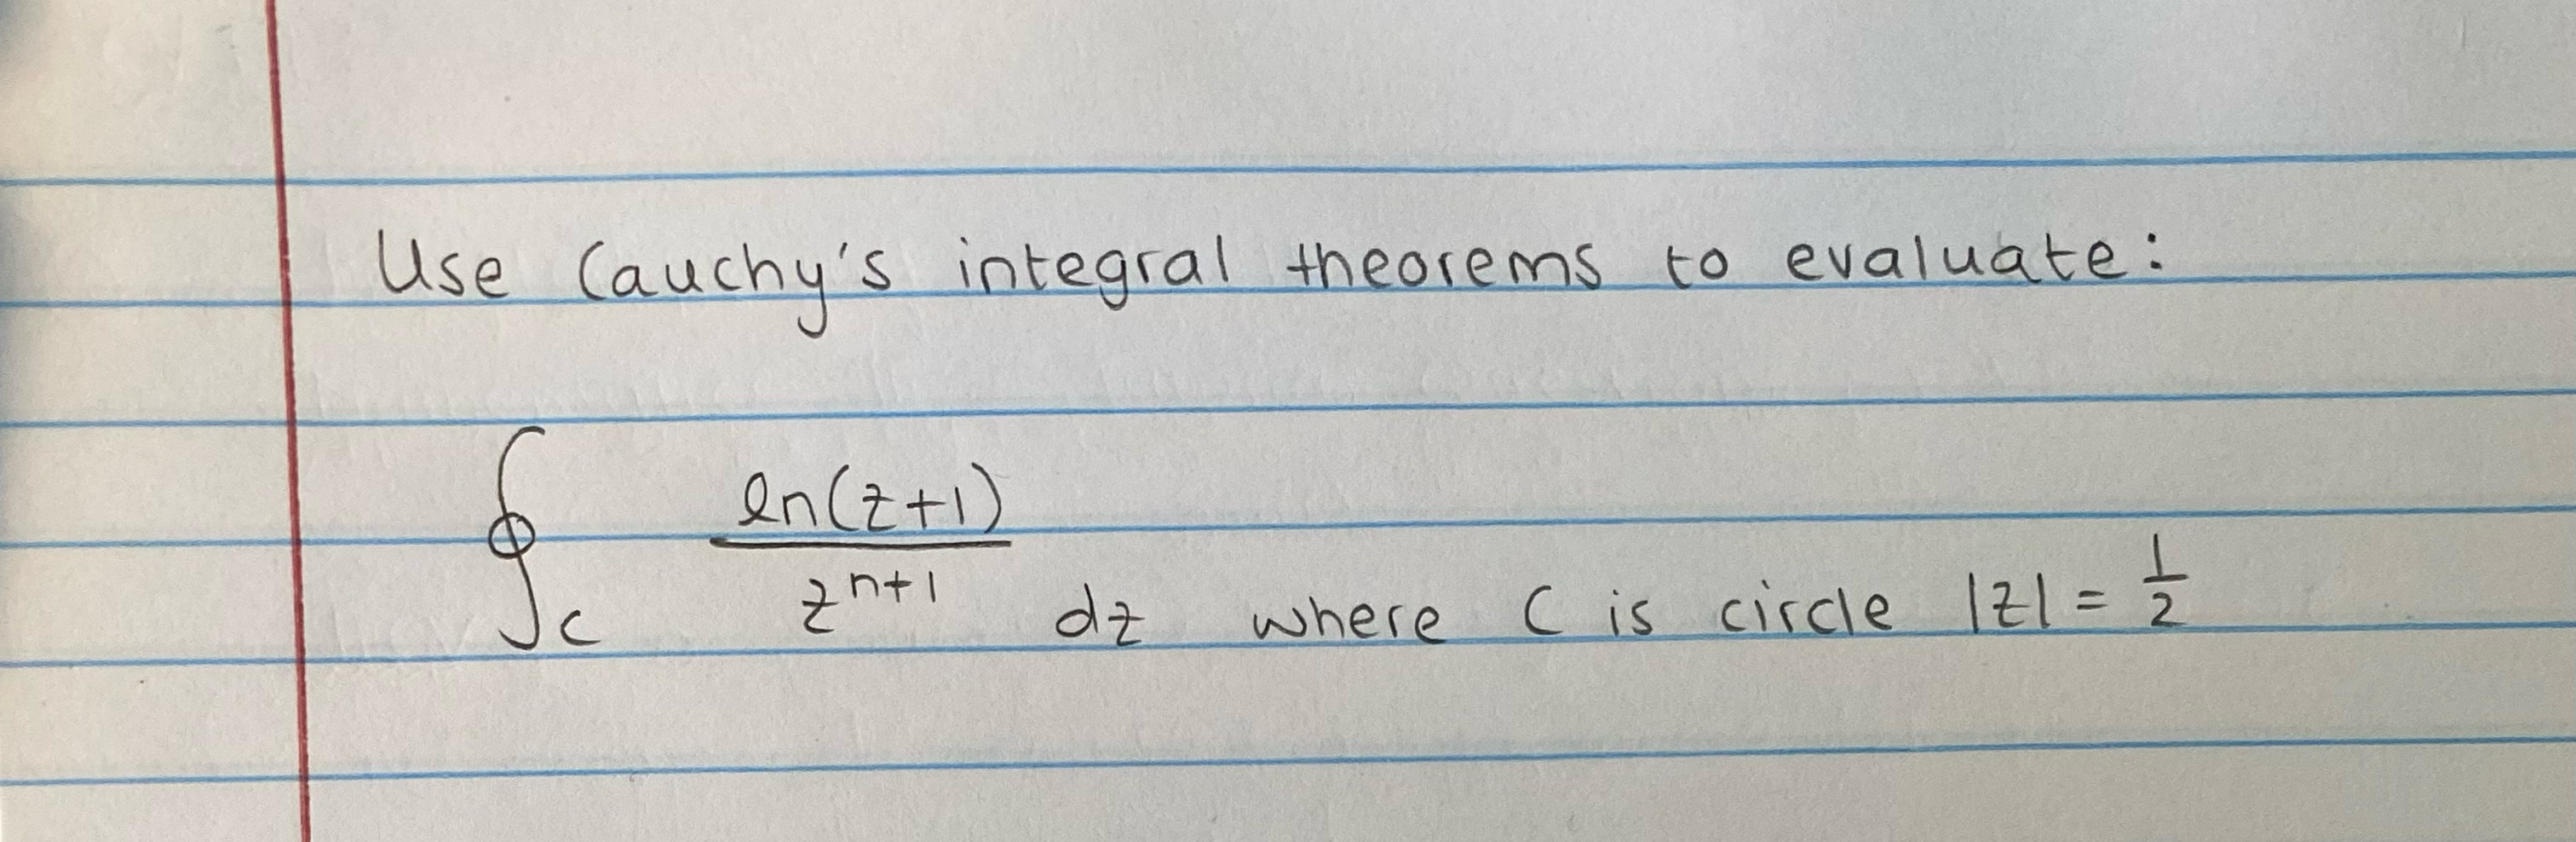 Use Cauchy's integral theorems to evaluate:
∮_C ln(z+1)/z^{n+1} dz where C is circle |z| = 1/2